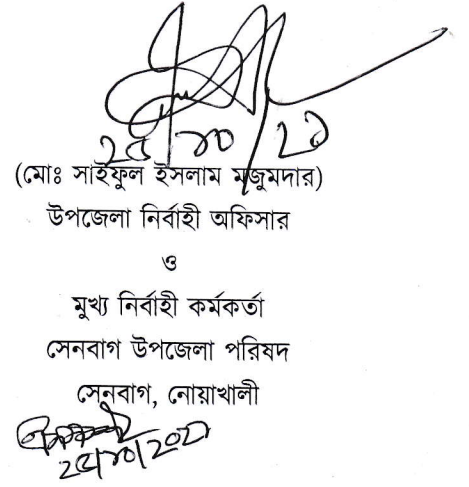 ২৫/১০/২১
(মোঃ সাইফুল ইসলাম মজুমদার)
উপজেলা নির্বাহী অফিসার
ও
মুখ্য নির্বাহী কর্মকর্তা
সেনবাগ উপজেলা পরিষদ
সেনবাগ, নোয়াখালী
২৫/১০/২০২১